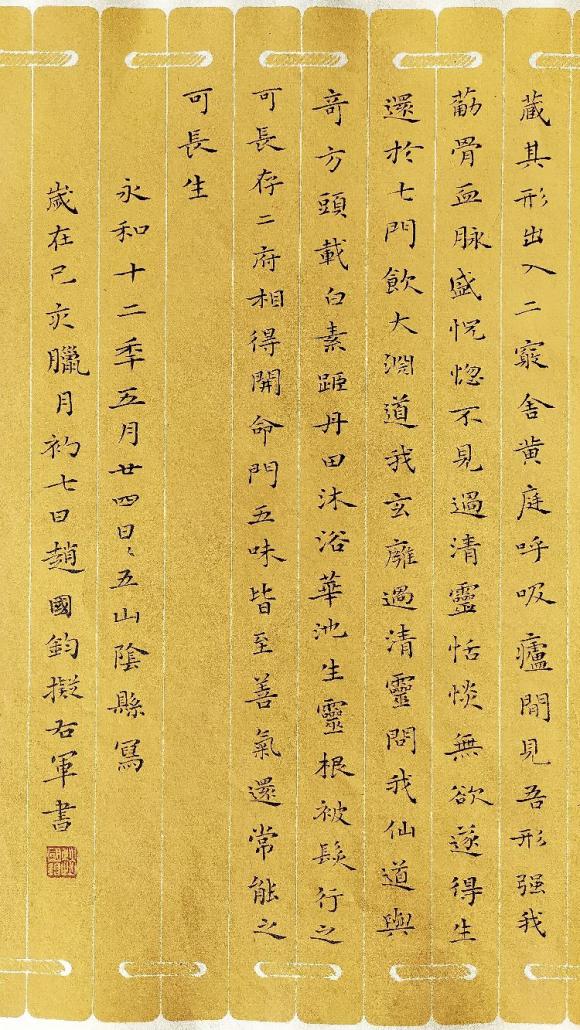 藏其形出入二竅舍黃庭呼吸廬間見吾形强我
筋骨血脉盛恍惚不見過清靈恬惔無欲遂得生
還於七門飲大淵道我玄廱過清靈問我仙道與
奇方頭載白素距丹田沐浴華池生靈根被髮行之
可長存二府相得開命門五味皆至善氣還常能之
可長生
永和十二年五月廿四日〻五山陰縣寫
歲在己亥臘月初七日趙國鈞擬右軍書